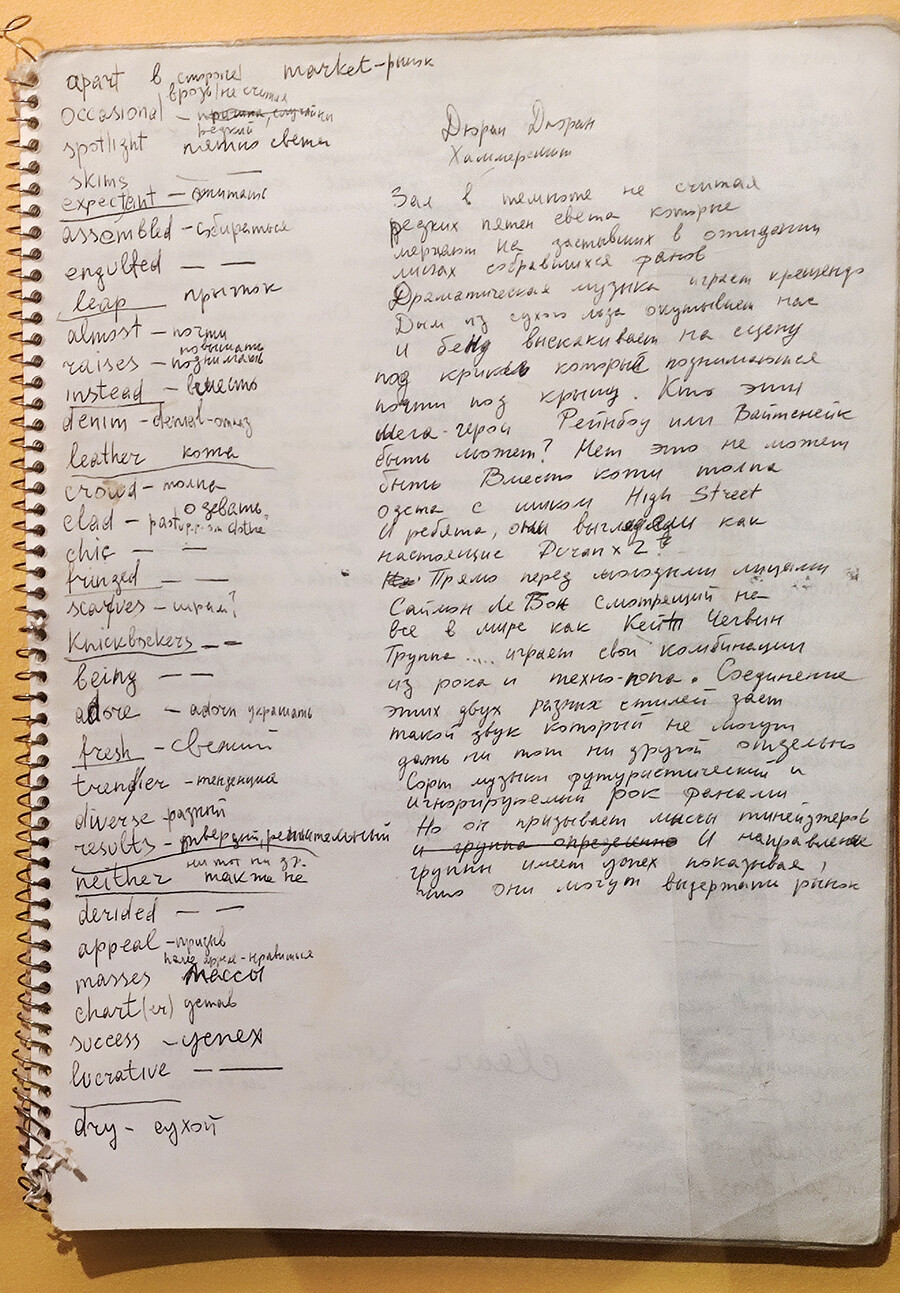 apart в стороне market-рынок
врозь/не считая
occasional - случайный
редкий
spotlight пятно света
skims —
expectant - ожидать
assembled - собираться
engulfed — —
leap прыжок
almost - почти
повышать
raises - поднимать
instead - вместо
denim - denial-отказ
leather кожа
crowd - толпа
одевать
clad - past clothe
chic — —
fringed — —
scarves - шрам?
Knickbockers — —
being — —
adore - adorn украшать
fresh - свежий
trendier - тенденция
diverse - разный
results - диверзит, решительный
ни тот ни др.
neither также не
derided — —
appeal - призыв
нравиться
masses массы
chart(er) устав
success - успех
lucrative — —
dry - сухой
Дюран Дюран
Хаммерсмит
Зал в темноте не считая
редких пятен света которые
мерцают на застывших в ожидании
лицах собравшихся фанов
Драматическая музыка играет крещендо
Дым из сухого льда окутывает нас
и бенд выскакивает на сцену
под крики который поднимаются
почти под крышу. Кто эти
мега-герои Рейнбоу или Вайтснейк
быть может? Нет это не может
быть Вместо кожи толпа
одета с шиком High Street
И ребята, они выглядели как
настоящие Duran x 2
Прямо перед молодыми лицами
Саймон Ле Бон смотрящий на
все в мире как Кейтh Чегвин
Группа ..... играет свои комбинации
из рока и техно-попа. Соединение
этих двух разных стилей дает
такой звук который не могут
дать ни тот ни другой отдельно
Сорт музыки футуристический и
игнорируемый рок фанами
Но он призывает массы тинейджеров
и группа определенно И направление
группы имеет успех показывая,
что они могут выдержать рынок